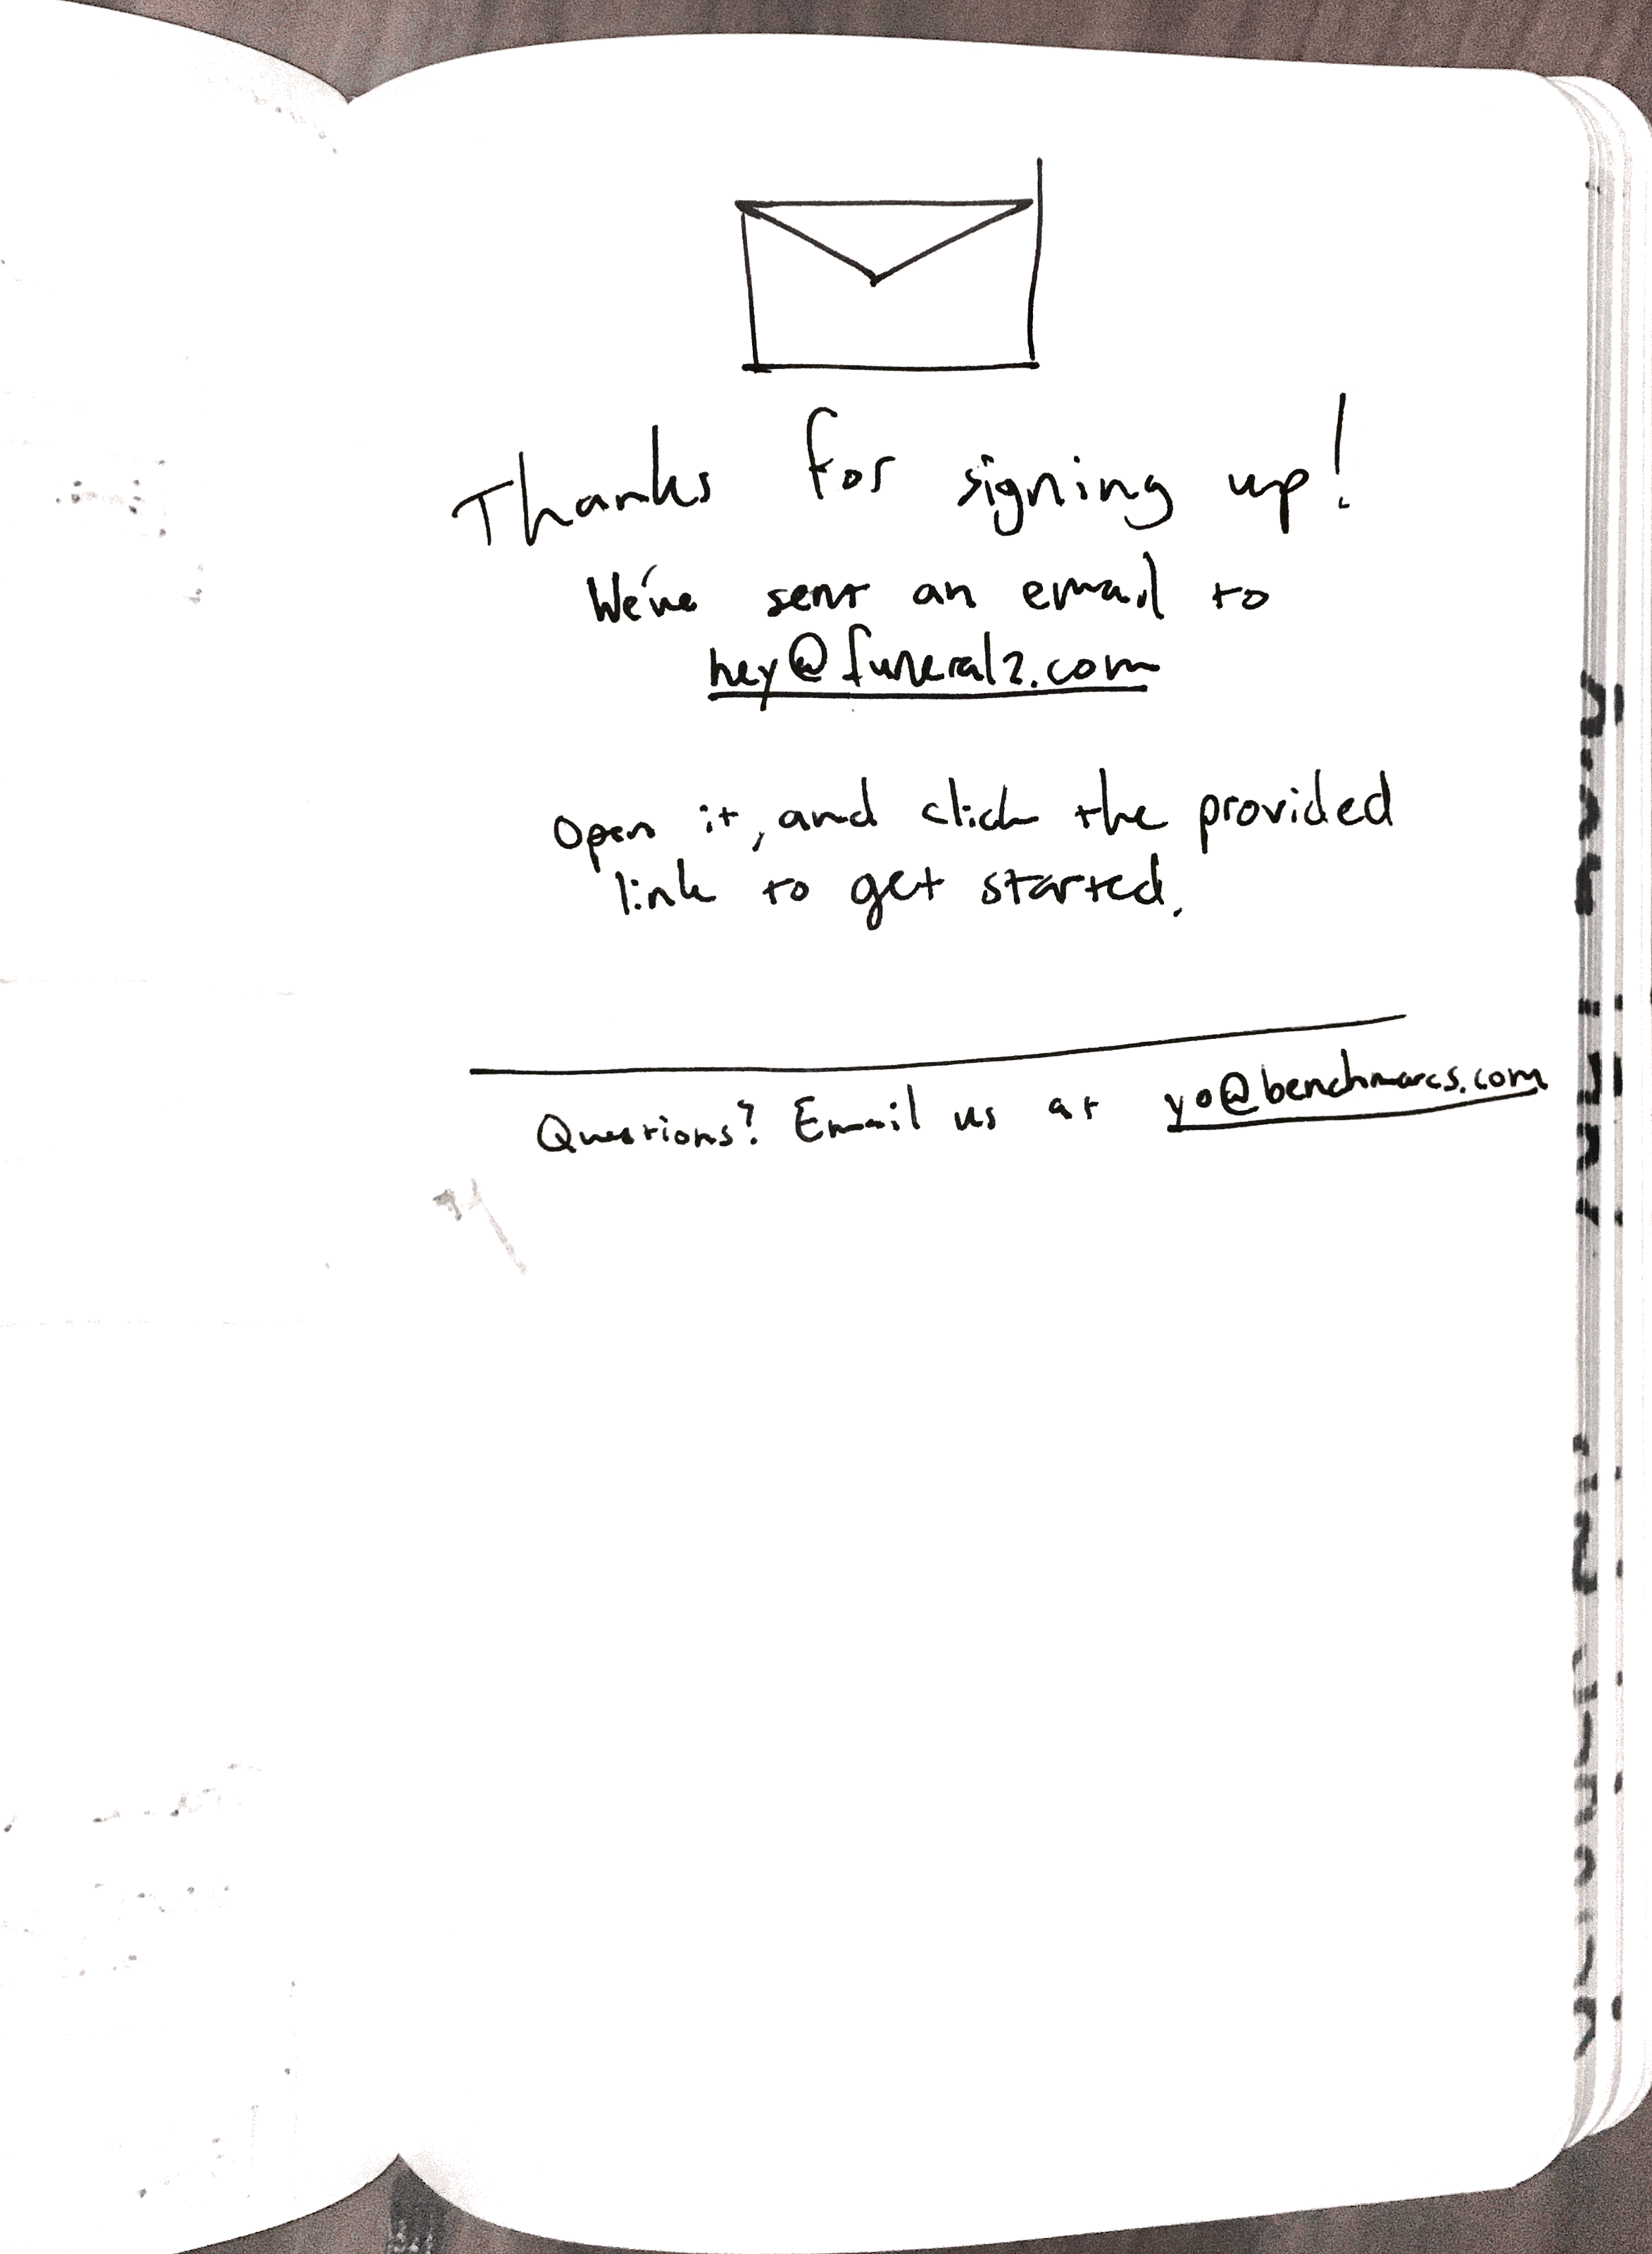 Thanks for signing up!
We've sent an email to
hey@funeral2.com
Open it, and click the provided
link to get started.
Questions? Email us at yo@benchmarcs.com